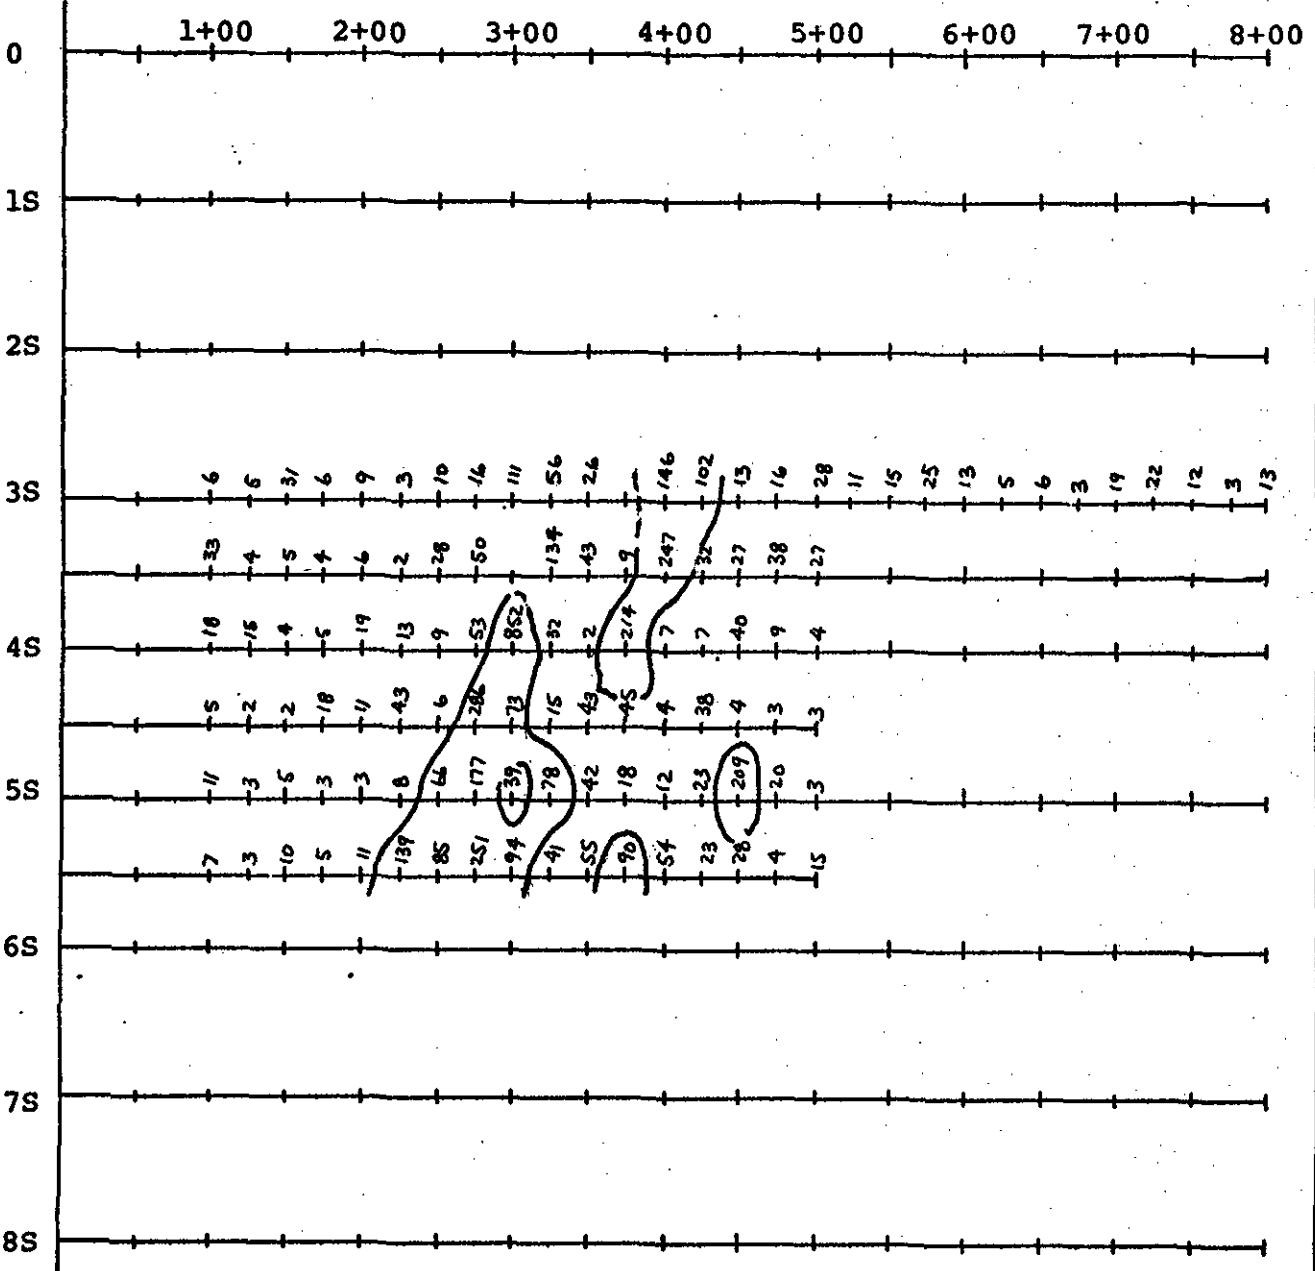 1+00 2+00 3+00 4+00 5+00 6+00 7+00 8+00
0
1S
2S
3S 6 5 31 6 9 3 10 16 111 56 26 146 102 13 16 28 11 15 25 13 5 6 3 19 22 12 3 13
33 4 5 4 6 2 28 50 134 43 9 247 32 27 38 27
4S 18 15 4 5 19 13 9 53 852 32 2 214 7 7 40 9 4
5 2 2 18 11 43 6 286 73 15 43 45 4 38 4 3 3
5S 11 3 5 3 3 8 66 177 39 78 42 18 12 23 209 20 3
7 3 10 5 11 139 85 251 94 41 55 90 54 23 28 4 15
6S
7S
8S